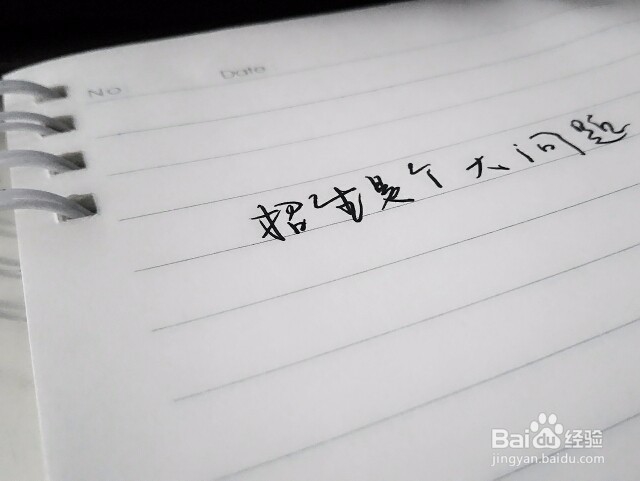 No.
Date
招生是个大问题
Baidu经验
jingyan.baidu.com